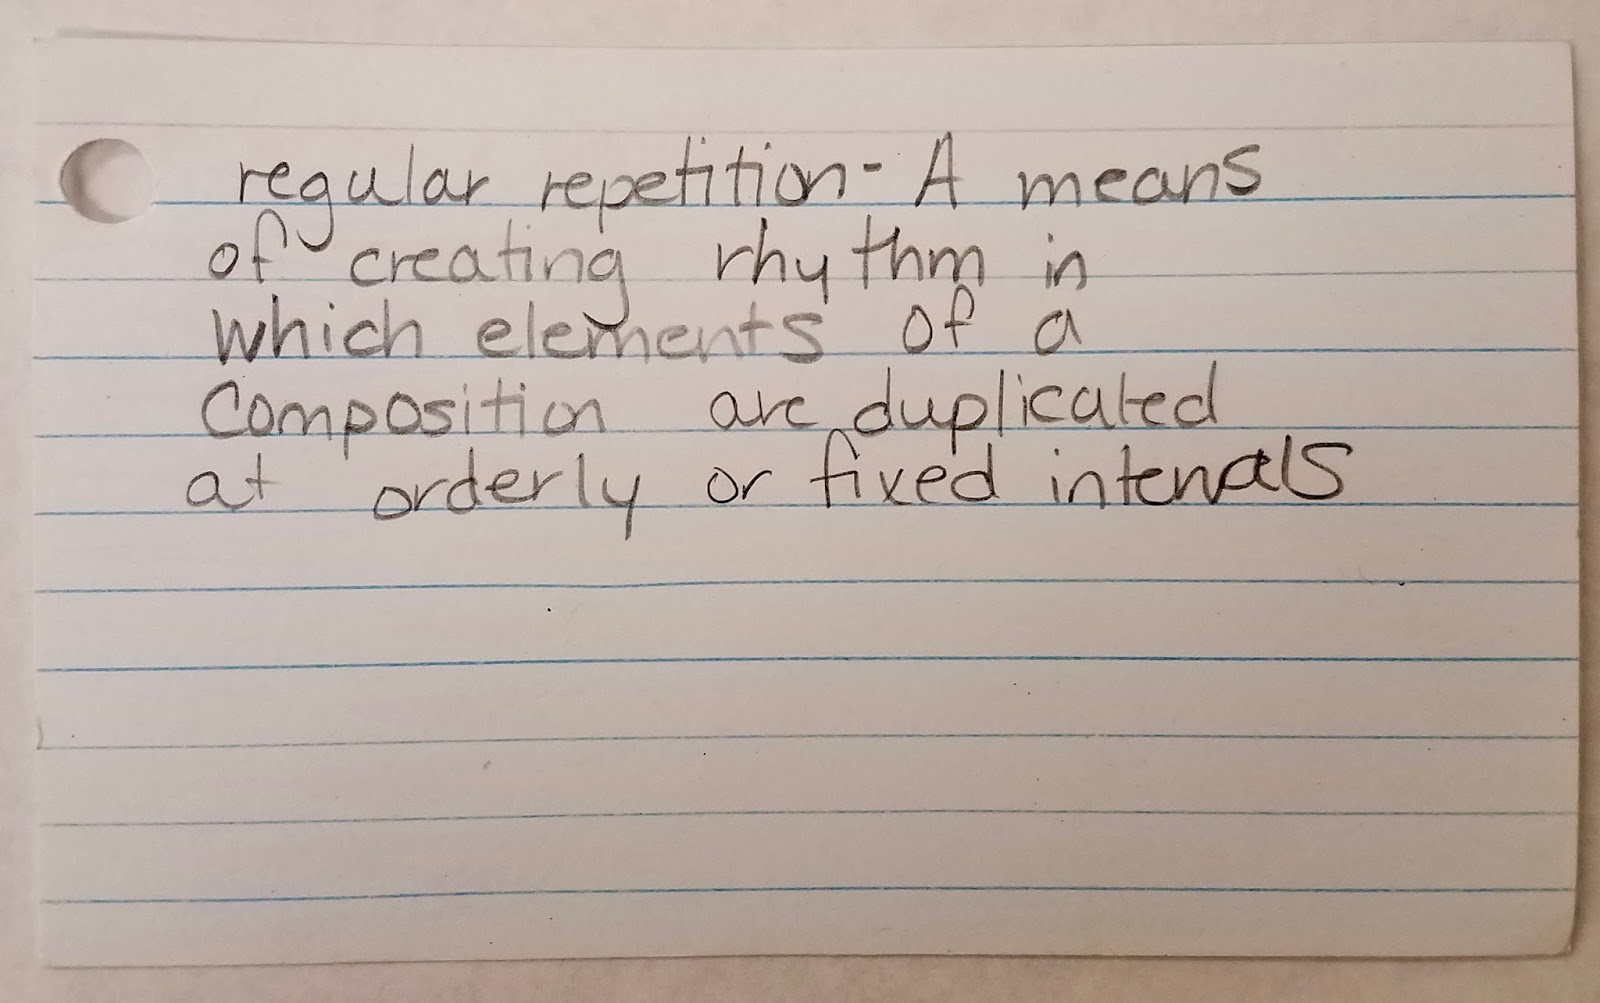 regular repetition - A means
of creating rhythm in
which elements of a
Composition are duplicated
at orderly or fixed intervals